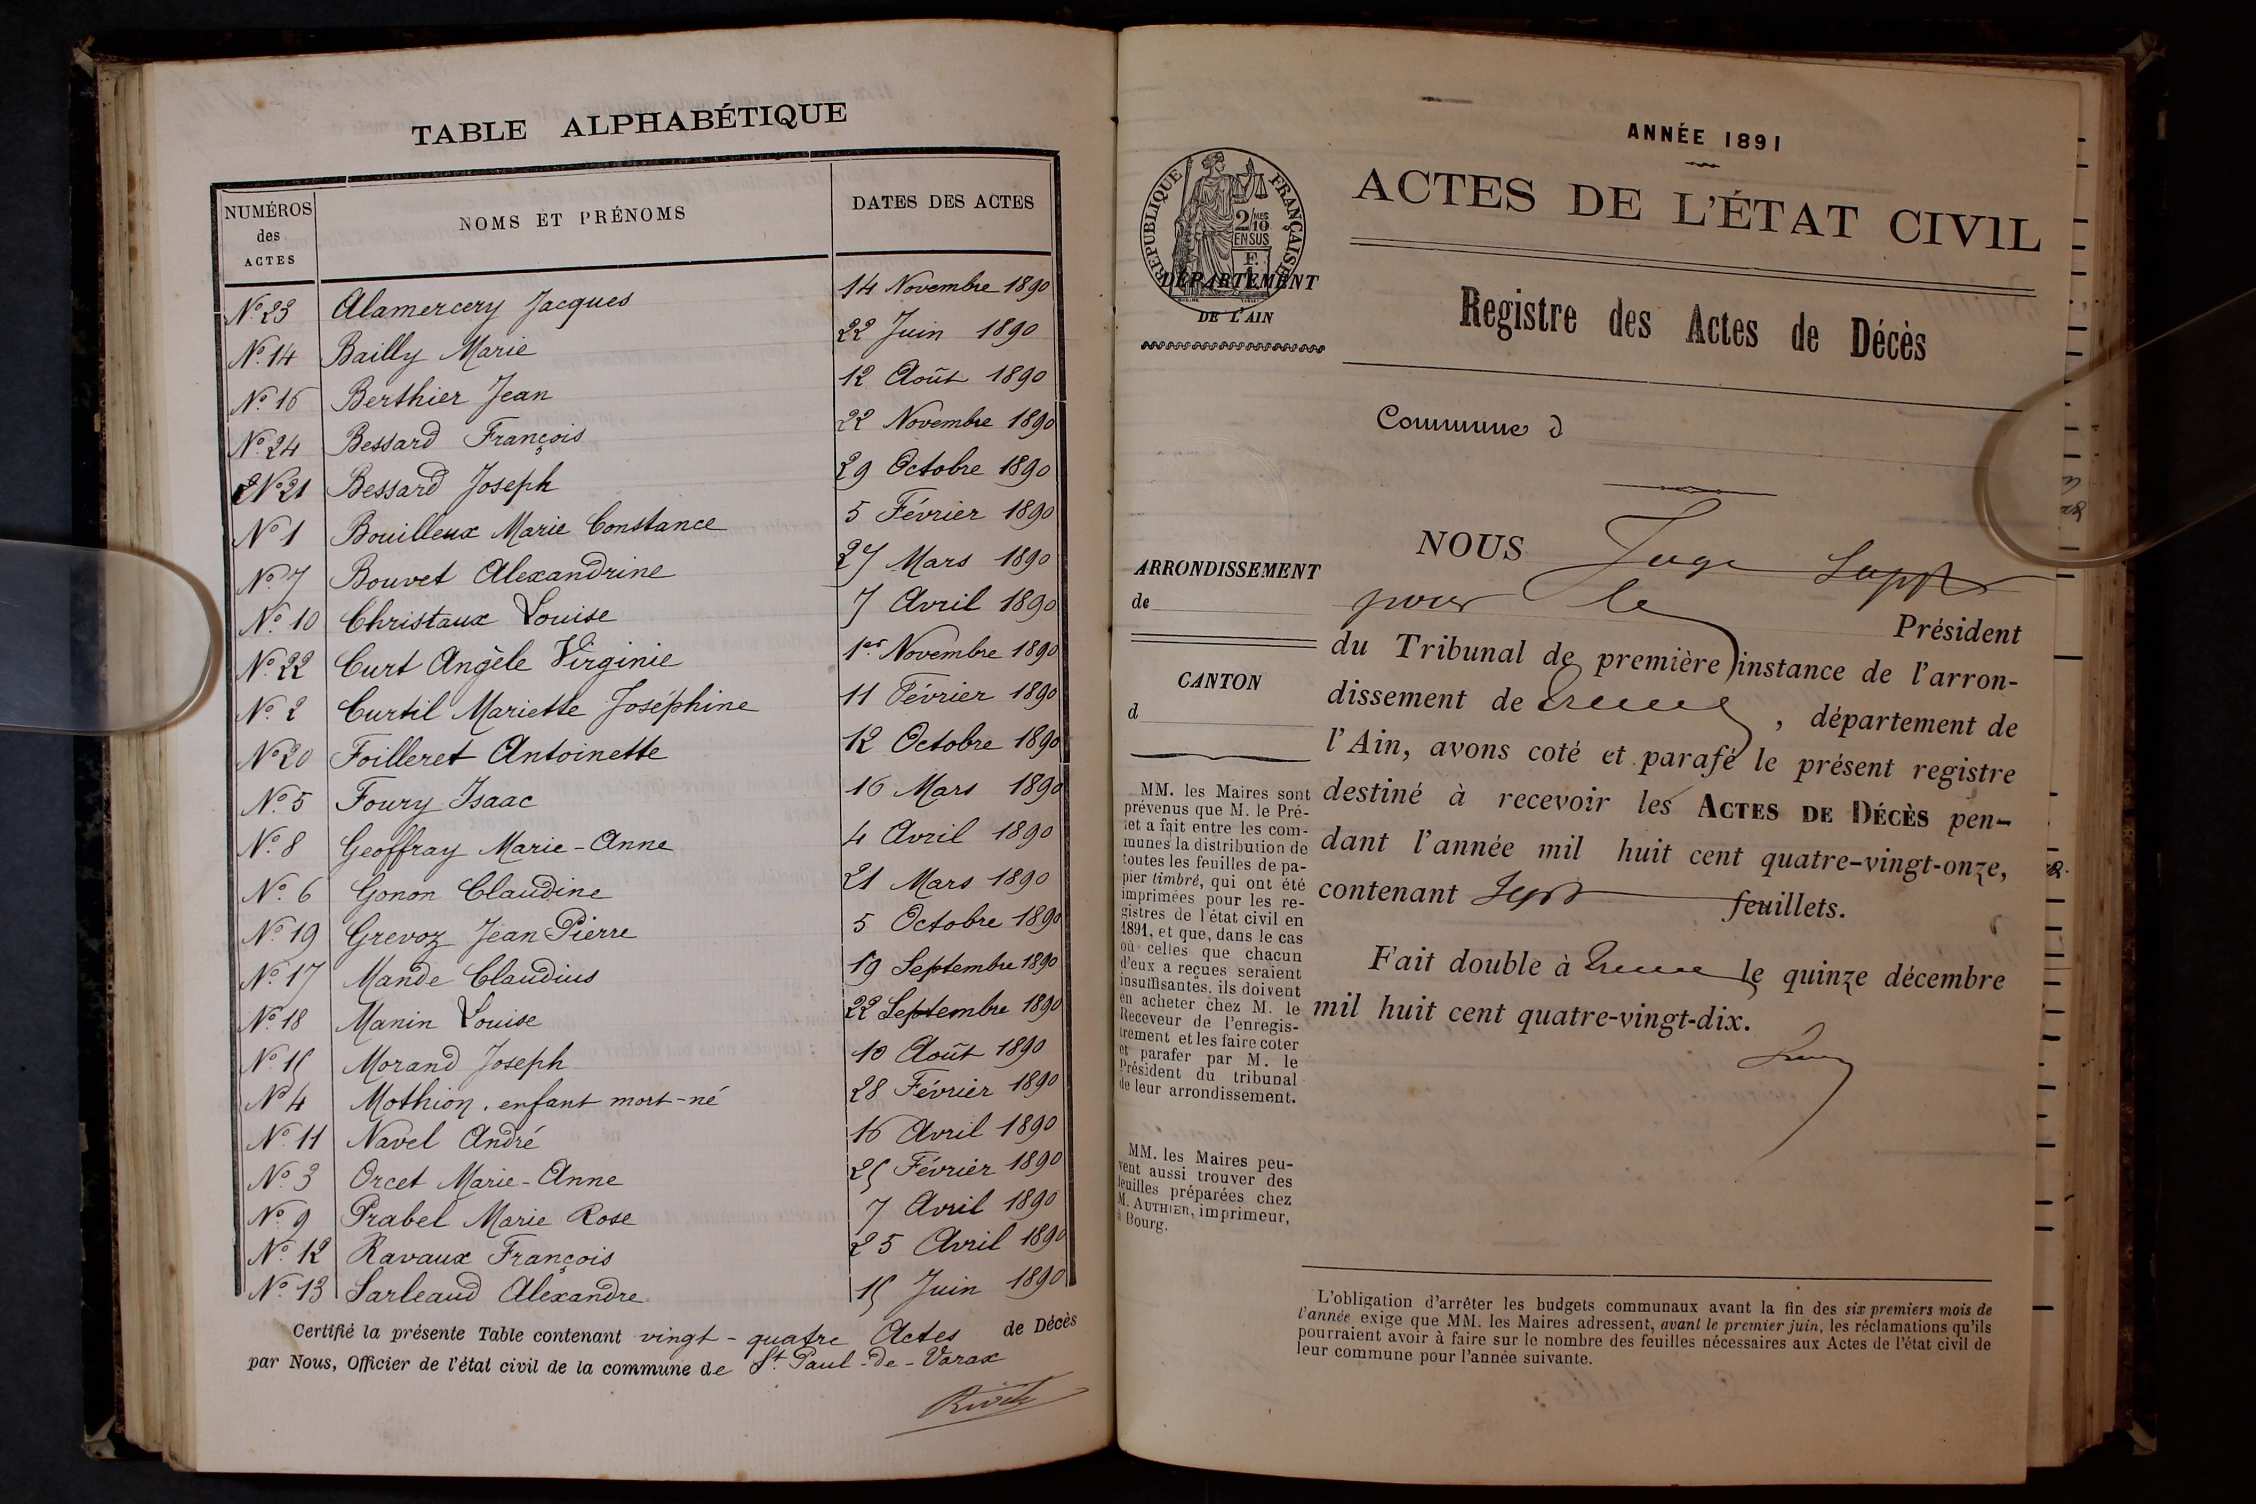 TABLE ALPHABÉTIQUE
NUMÉROS des ACTES NOMS ET PRÉNOMS DATES DES ACTES
N° 23 Alamercery Jacques 14 Novembre 1890
N° 14 Bailly Marie 22 Juin 1890
N° 16 Berthier Jean 12 Août 1890
N° 24 Bessard François 22 Novembre 1890
N° 21 Bessard Joseph 29 Octobre 1890
N° 1 Bouilleux Marie Constance 5 Février 1890
N° 7 Bouvet Alexandrine 27 Mars 1890
N° 10 Christaux Louise 7 Avril 1890
N° 22 Curt Angèle Virginie 1er Novembre 1890
N° 2 Curtil Mariette Joséphine 11 Février 1890
N° 20 Foilleret Antoinette 12 Octobre 1890
N° 5 Foury Isaac 16 Mars 1890
N° 8 Geoffray Marie-Anne 4 Avril 1890
N° 6 Gonon Claudine 21 Mars 1890
N° 19 Grevoz Jean Pierre 5 Octobre 1890
N° 17 Mande Claudius 19 Septembre 1890
N° 18 Manin Louise 22 Septembre 1890
N° 15 Morand Joseph 10 Août 1890
N° 4 Mothion, enfant mort-né 28 Février 1890
N° 11 Navel André 16 Avril 1890
N° 3 Orcet Marie-Anne 25 Février 1890
N° 9 Prabel Marie Rose 7 Avril 1890
N° 12 Ravaux François 25 Avril 1890
N° 13 Sarleaud Alexandre 15 Juin 1890
Certifié la présente Table contenant vingt-quatre Actes de Décès
par Nous, Officier de l'état civil de la commune de St Paul-de-Varax
ANNÉE 1891
RÉPUBLIQUE FRANÇAISE
2/10 MES
EN SUS
DÉPARTEMENT
DE L'AIN
ACTES DE L'ÉTAT CIVIL
Registre des Actes de Décès
Commune d
ARRONDISSEMENT
de
CANTON
d
MM. les Maires sont
prévenus que M. le Pré-
fet a fait entre les com-
munes la distribution de
toutes les feuilles de pa-
pier timbré, qui ont été
imprimées pour les re-
gistres de l'état civil en
1891, et que, dans le cas
où celles que chacun
d'eux a reçues seraient
insuffisantes, ils doivent
en acheter chez M. le
Receveur de l'enregis-
trement et les faire coter
et parafer par M. le
Président du tribunal
de leur arrondissement.
MM. les Maires peu-
vent aussi trouver des
feuilles préparées chez
M. AUTHIER, imprimeur,
à Bourg.
NOUS Juge Suppt
pour le Président
du Tribunal de première instance de l'arron-
dissement de , département de
l'Ain, avons coté et parafé le présent registre
destiné à recevoir les ACTES DE DÉCÈS pen-
dant l'année mil huit cent quatre-vingt-onze,
contenant sept feuillets.
Fait double à le quinze décembre
mil huit cent quatre-vingt-dix.
L'obligation d'arrêter les budgets communaux avant la fin des six premiers mois de
l'année exige que MM. les Maires adressent, avant le premier juin, les réclamations qu'ils
pourraient avoir à faire sur le nombre des feuilles nécessaires aux Actes de l'état civil de
leur commune pour l'année suivante.